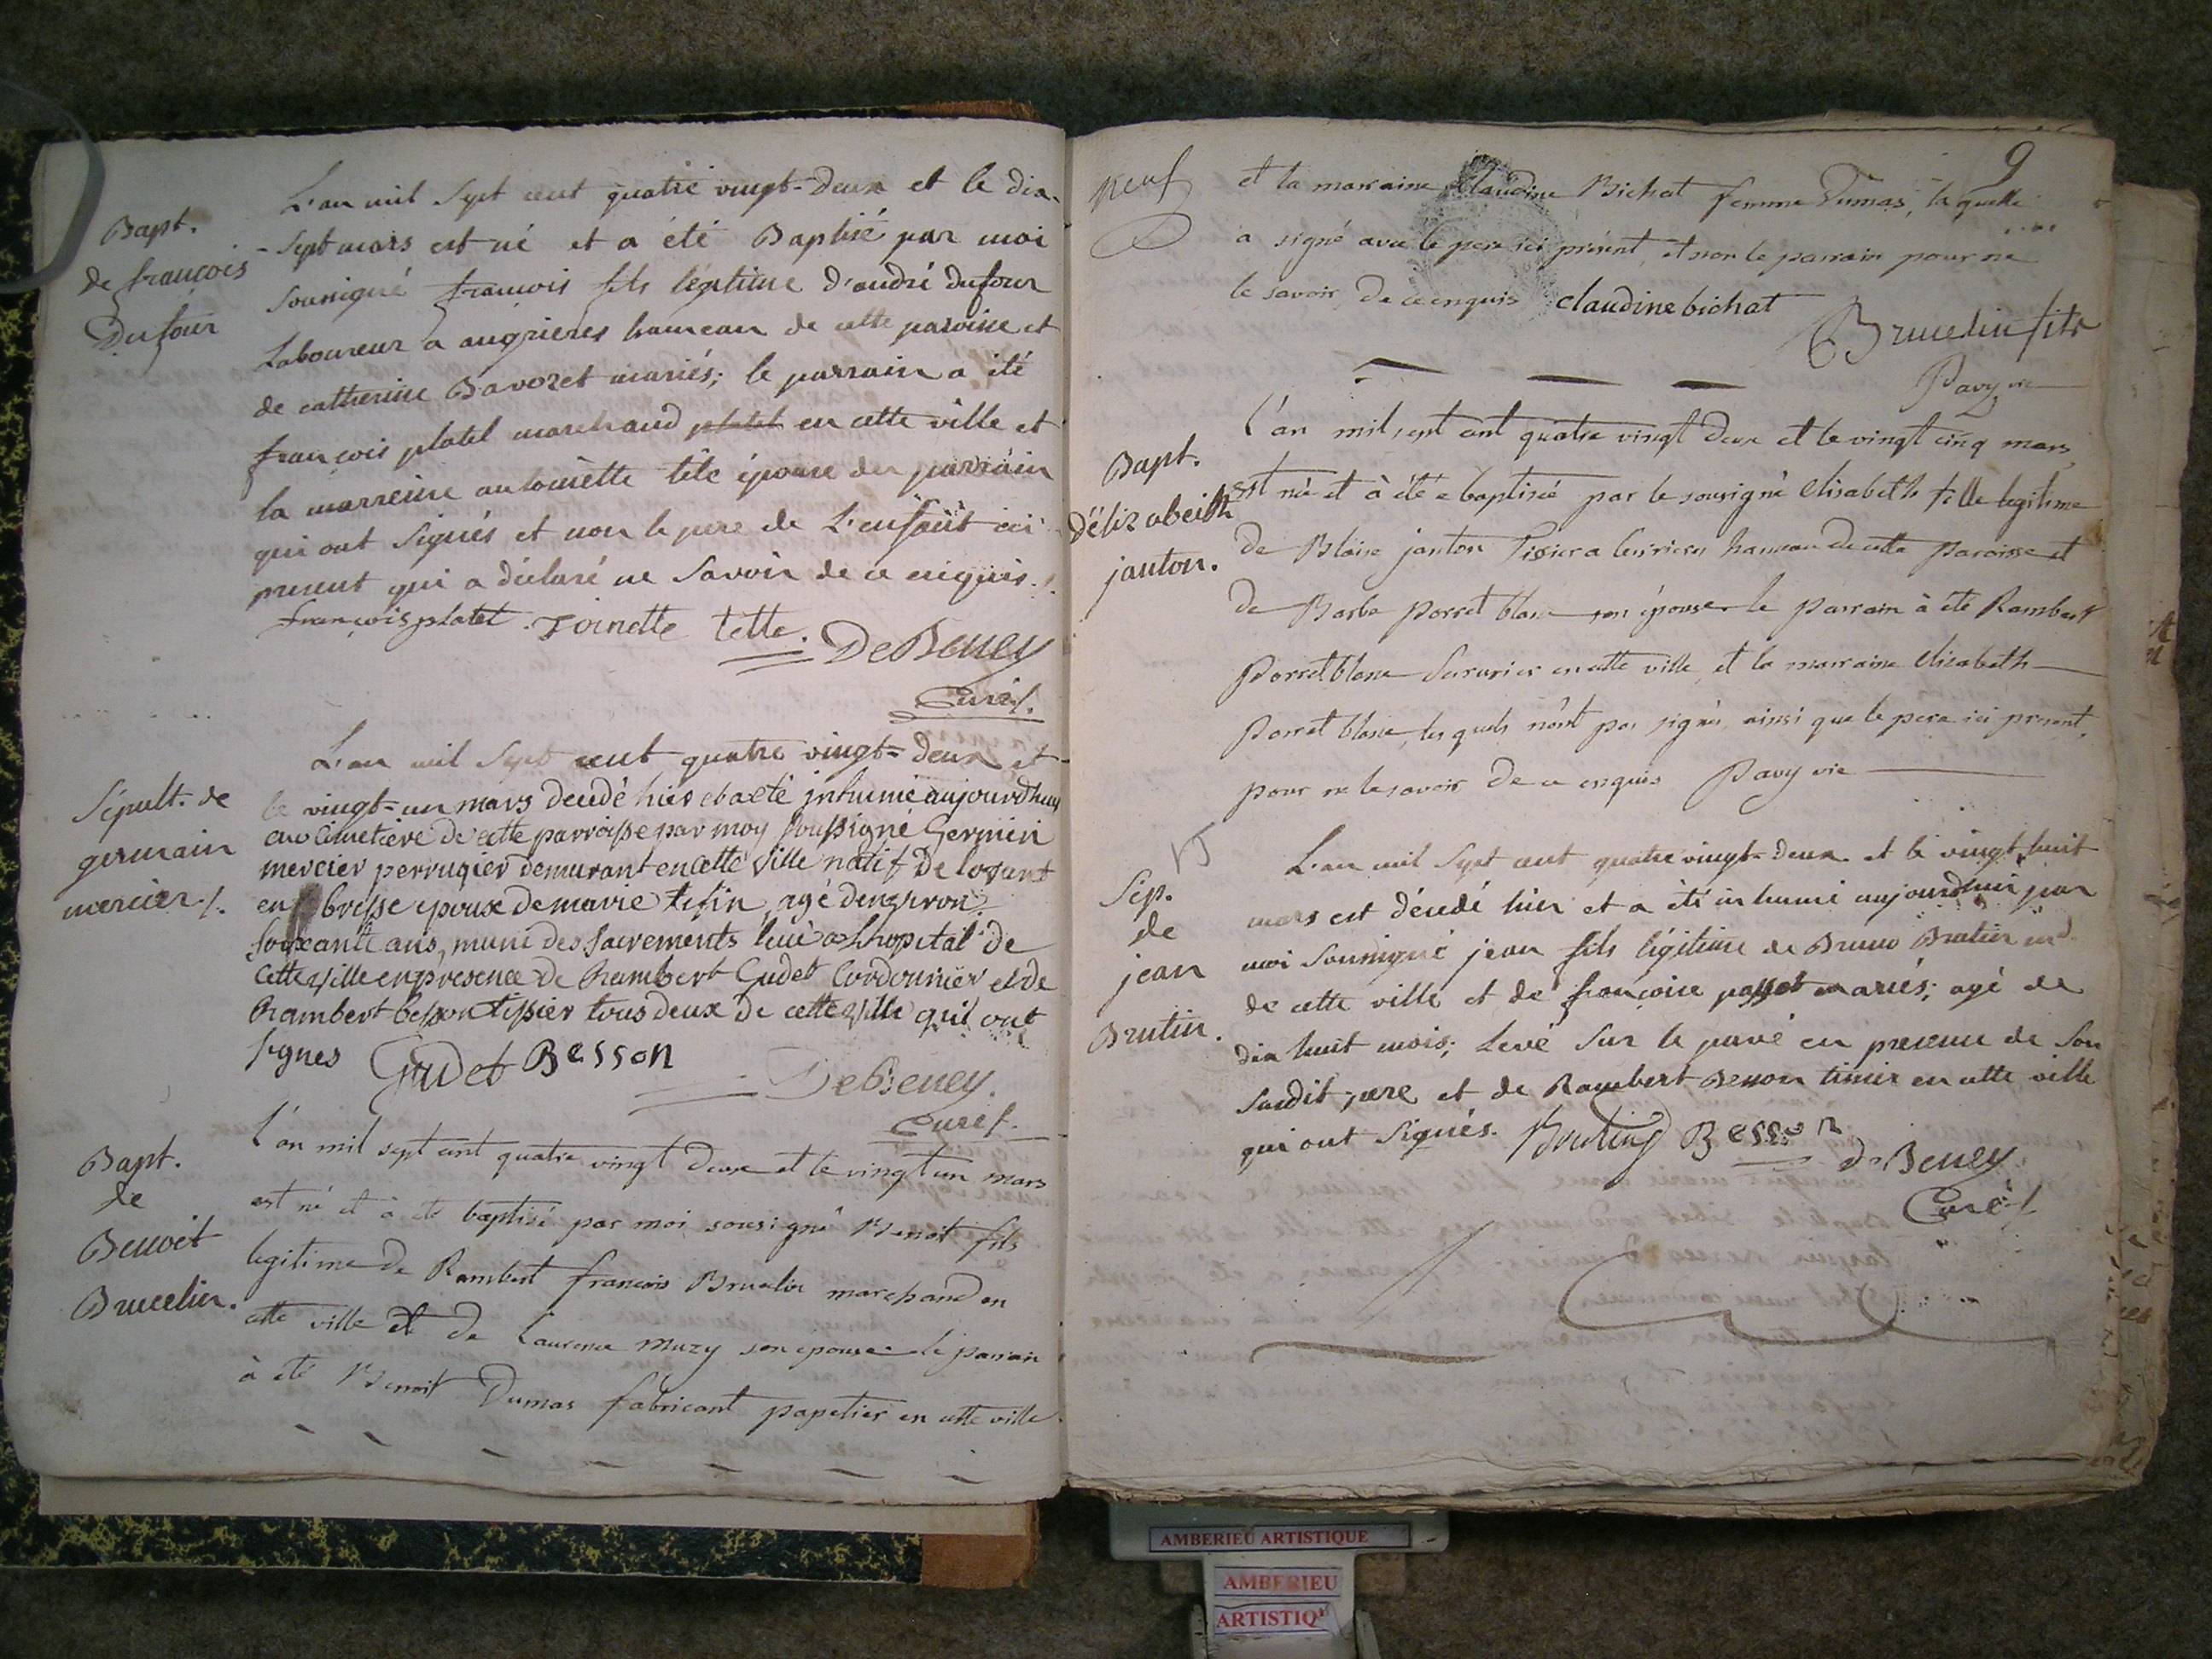 Bapt.
de françois
Dufour
L'an mil Sept cent quatre vingt-deux et le dix-
-Sept mars est né et a été Baptisé par moi
soussigné françois fils légitime d'andré dufour
Laboureur a angrieres hameau de cette paroisse et
de catherine Bavozet mariés; le parrain a été
françois platel marchand platel en cette ville et
la marreine antoinette tête épouse du parrain
qui ont signés et non le pere de L'enfant ici
present qui a déclaré ne Savoir de ce enquis ./.
françois platel . Toinette tette. DeBeney
Curé/.
Sépult. de
germain
mercier ./.
L'an mil Sept cent quatre vingt-deux et
le vingt-un mars decedé hier et a eté inhumé aujourdhuy
au Cimetiere de cette parroisse par moy soussigné Germein
mercier perruquier demurant en cette ville natif De
en bresse epoux De marie tifin, agé denzviron
soixante ans, muni des sacrements levé a lhopital de
cette ville en presence De Rambert Gudet Cordonnier et de
Rambert besson tissier tous deux de cette ville qui ont
signes Gudet Besson
DeBeney.
Curé/.
Bapt.
de
Benoit
Brucelin.
l'an mil sept cent quatre vingt deux et le vingt un mars
est né et à eté baptisé par moi sousigné Benoit fils
legitime de Rambert françois Brucelin marchand en
cette ville et de Laurence Muzy son epouse le parrain
à eté Benoit Dumas fabricant papetier en cette ville
9
neuf
et la marraine Claudine Bichat femme Dumas, la quelle
a signé avec le pere ici présent, et non le parrain pour ne
le savoir De ce enquis claudine bichat
Brucelin fils
Pavy vic
Bapt.
d'élizabeith
janton.
l'an mil sept cent quatre vingt deux et le vingt cinq mars
est née et à été baptisée par le sousigné elisabeth fille legitime
de Blaise janton Tissier a hameau de cette Paroisse et
de Barbe Porret blanc son épouse le parrain à eté Rambert
Porret blanc Serurier en cette ville et la marraine elisabeth
Porret blanc, les quels n'ont pas signés ainsi que le pere ici present,
pour ne le savoir De ce enquis Pavy vic
Sép.
de
jean
Brutin.
L'an mil Sept cent quatre vingt-deux et le vingt huit
mars est décedé hier et a été inhumé aujourdhui par
moi soussigné jean fils légitime de Bruno Brutin md.
de cette ville et de françoise passot mariés; agé de
dix huit mois; Levé Sur le pavé en presence de Son
susdit pere et de Rambert Besson tissier en cette ville
qui ont Signés. Brutin Besson
de Beney
Curé/.
AMBERIEU ARTISTIQUE
AMBERIEU
ARTISTIQ